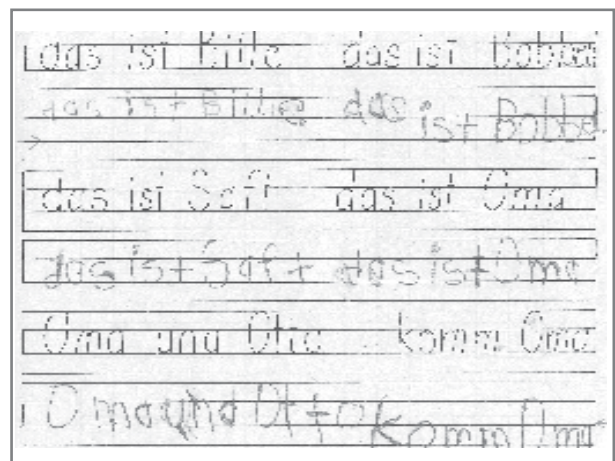 das ist das ist
das ist das ist
das ist Saft das ist Oma
das ist Saft das ist Oma
Oma und Otto komm Oma
Oma und Otto komm Oma